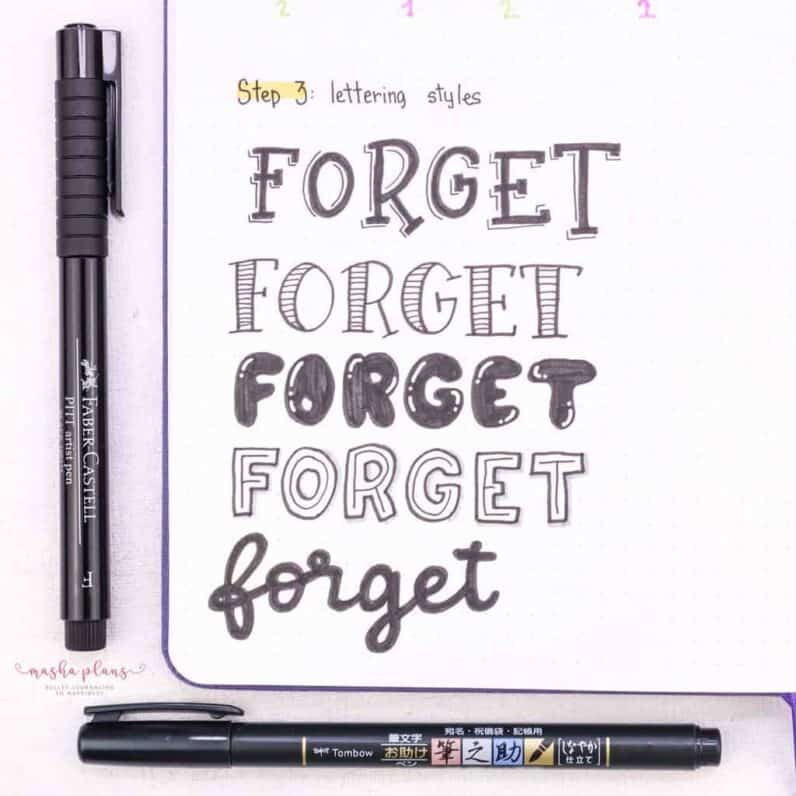 2 1 2 1
Step 3: lettering styles
FORGET
FORGET
FORGET
FORGET
forget
FABER-CASTELL
PITT artist pen
F
masha plans
BULLET JOURNALING
TO HAPPINESS
Tombow
筆文字
お助け
ペン
筆之助
宛名・祝儀袋・記帳用
しなやか
仕立て